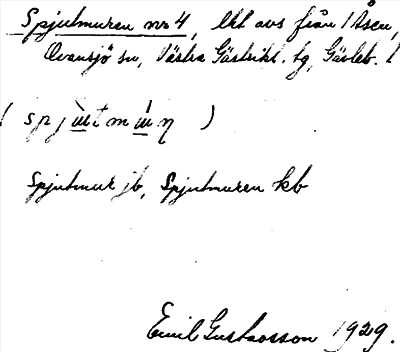 Spjutmuren no 4, lht avs från 1 Åsen,
Ovansjö sn, Västra Gästrikl. tg, Gävleb. l
( spjutmuɯ̄n )
Spjutmur jb, Spjutmuren kb
Emil Gustavsson 1929.